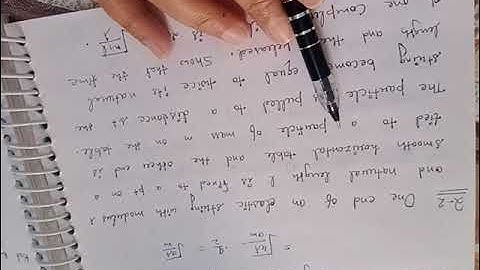 Q-2 One end of an elastic string with modulus λ
and natural length l is fixed to a pt on a
smooth horizontal table and the other end
tied to a particle of mass m on the table.
The particle is pulled to a distance s.t. the
string becomes equal to twice its natural
length and the released. Show that the time
one Comple is